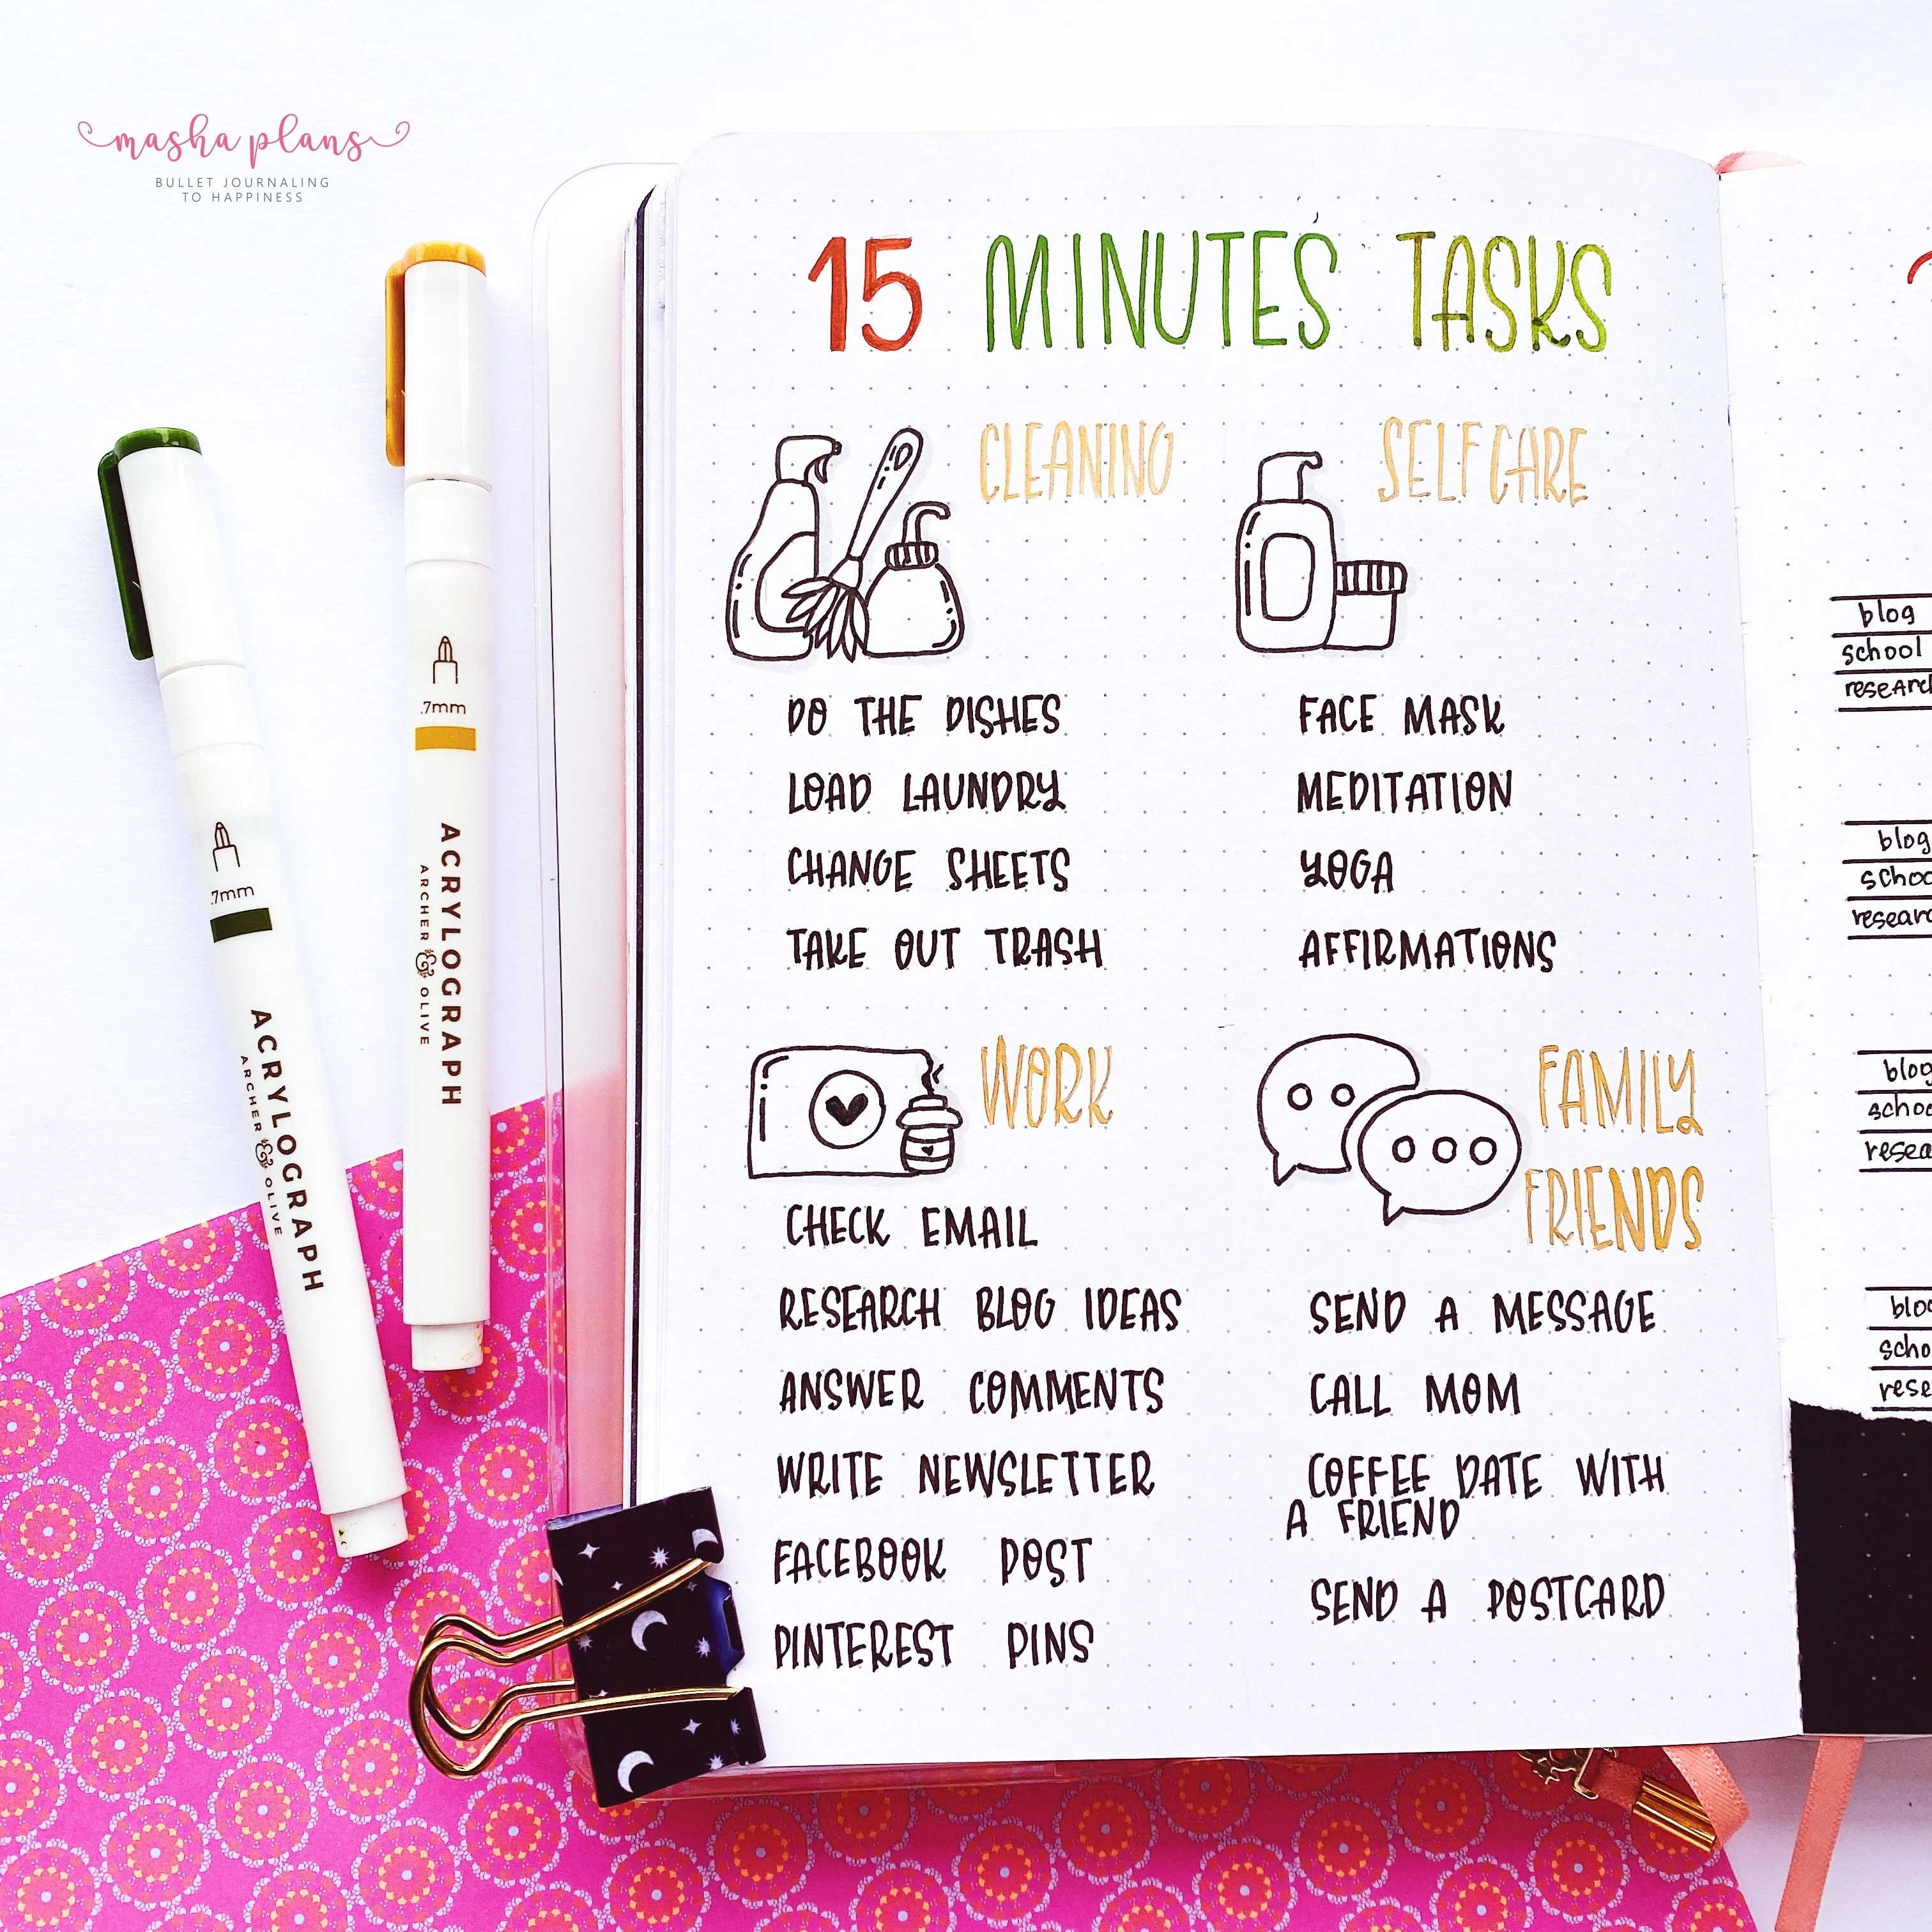 masha plans
BULLET JOURNALING
TO HAPPINESS
15 MINUTES TASKS
CLEANING
DO THE DISHES
LOAD LAUNDRY
CHANGE SHEETS
TAKE OUT TRASH
SELFCARE
FACE MASK
MEDITATION
YOGA
AFFIRMATIONS
WORK
CHECK EMAIL
RESEARCH BLOG IDEAS
ANSWER COMMENTS
WRITE NEWSLETTER
FACEBOOK POST
PINTEREST PINS
FAMILY
FRIENDS
SEND A MESSAGE
CALL MOM
COFFEE DATE WITH
A FRIEND
SEND A POSTCARD
.7mm
ACRYLOGRAPH
ARCHER & OLIVE
.7mm
ACRYLOGRAPH
ARCHER & OLIVE
blog
school
research
blog
schoo
researc
blog
schoo
resea
blog
scho
rese